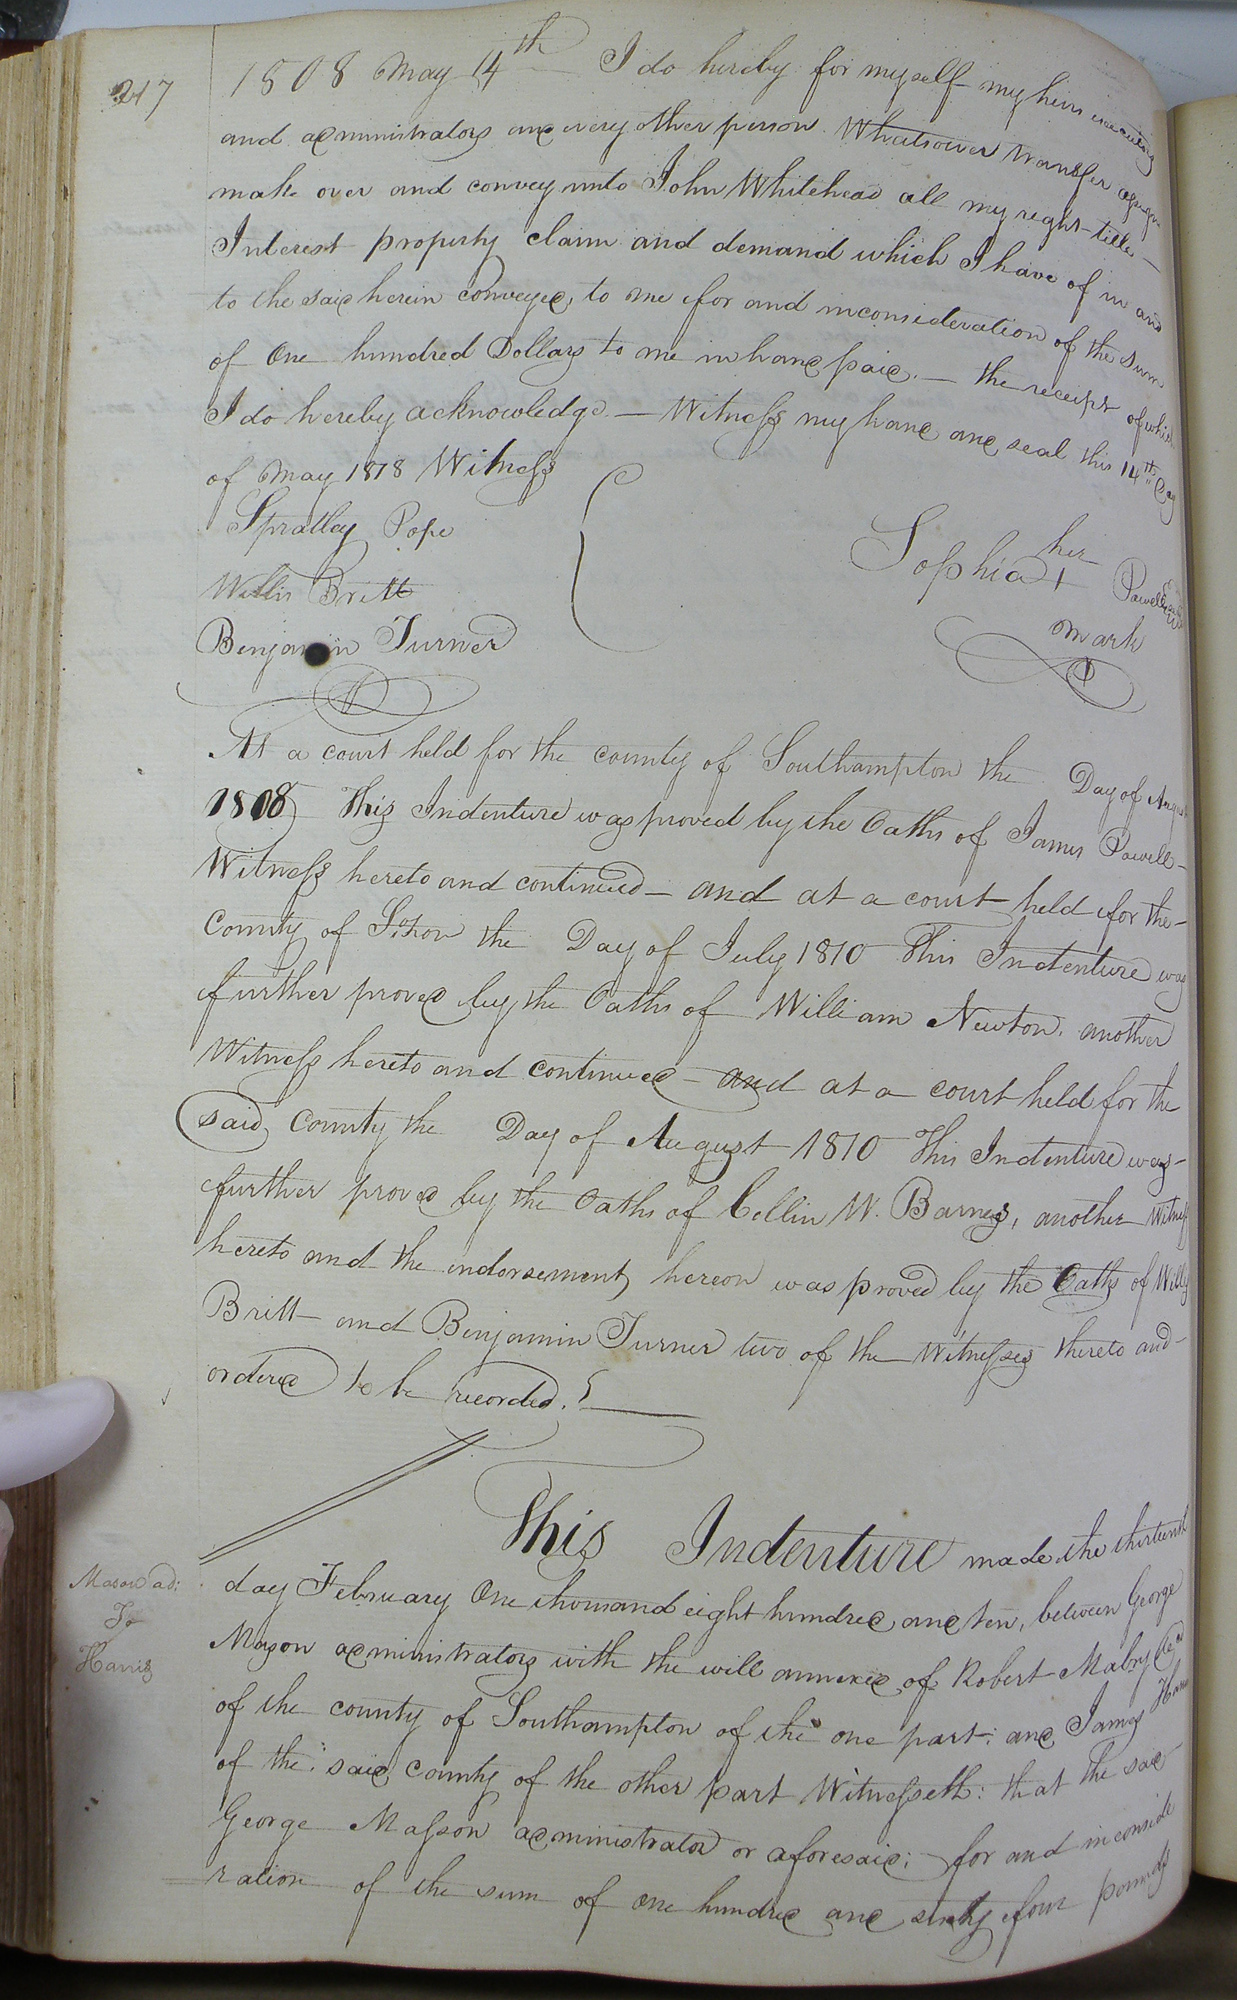 217
1808 May 14th I do hereby for myself my heirs executors
and administrators and every other person Whatsoever transfer assign
make over and convey unto John Whitehead all my right title
Interest property claim and demand which I have of in and
to the said herein conveyed, to me for and in consideration of the sum
of One hundred Dollars to me in hand paid. — the receipt of which
I do hereby acknowledge. — Witness my hand and seal this 14th Day
of May 1818 Witness
Spratley Pope
her
Sophia + Powell
Willis Britt
mark
Benjamin Turner
At a court held for the county of Southampton the Day of August
1808 This Indenture was proved by the Oaths of James Powell —
Witness hereto and continued — and at a court held for the —
County of Soton the Day of July 1810 This Indenture was
further proved by the Oaths of William Newton, another
Witness hereto and continued — and at a court held for the
said, County the Day of August 1810 This Indenture was —
further proved by the Oaths of Collin W. Barnes, another Witness
hereto and the endorsement, hereon was proved by the Oaths of Willis
Britt and Benjamin Turner two of the Witnesses thereto and —
ordered to be recorded.
This Indenture made the thirteenth
Mason ad:
To
Harris
day February One thousand eight hundred and ten, between George
Mason administrators with the will annexed of Robert Mabry decd
of the county of Southampton of the one part; and James Harris
of the said County of the other part Witnesseth: that the said
George Masson administrator or aforesaid; for and in conside
ration of the sum of one hundred and sixty four pounds